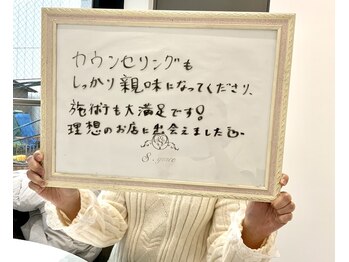 カウンセリングも
しっかり親味になってくださり、
施術も大満足です!
理想のお店に出会えました